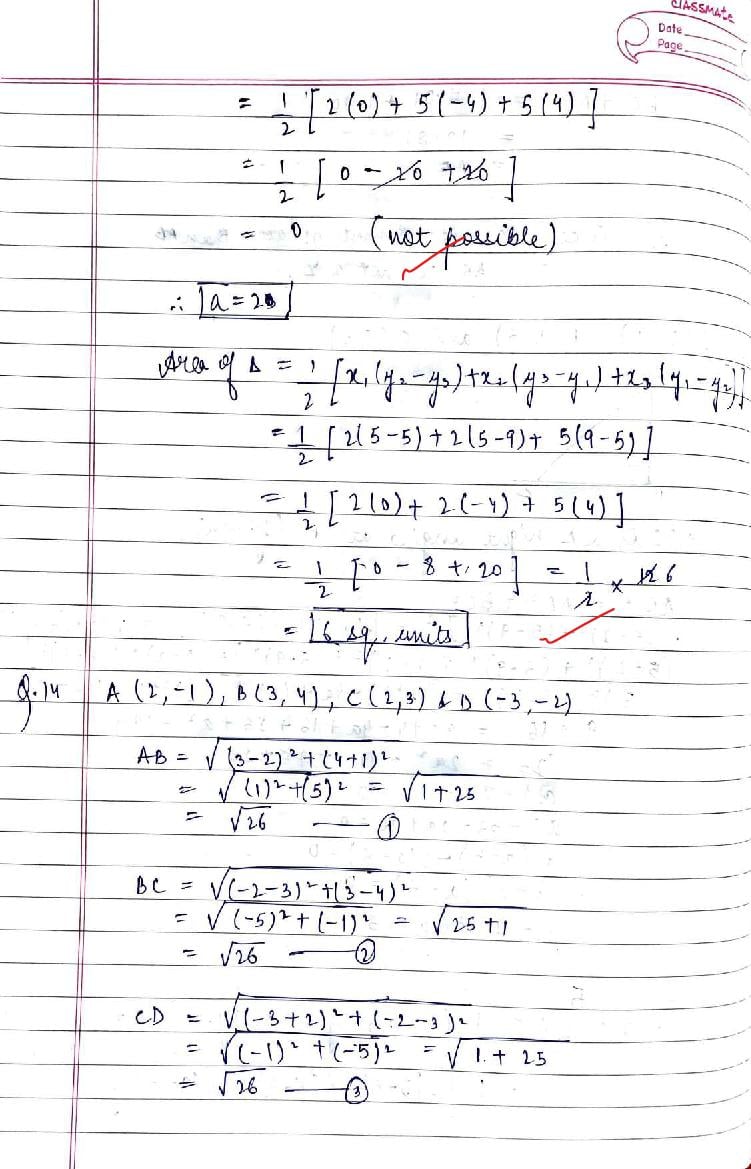 classmate
Date
Page
= 1/2 [2(0) + 5(-4) + 5(4)]
= 1/2 [0 - 20 + 20]
= 0 (not possible)
∴ a = 2
Area of Δ = 1/2 [x₁(y₂-y₃)+x₂(y₃-y₁)+x₃(y₁-y₂)]
= 1/2 [2(5-5)+2(5-9)+ 5(9-5)]
= 1/2 [2(0)+ 2(-4) + 5(4)]
= 1/2 [0 - 8 + 20] = 1/2 × 12 6
= 6 sq. units
Q.14 A (2,-1), B(3, 4), C(2,3) & D (-3,-2)
AB = √(3-2)²+(4+1)²
= √(1)²+(5)² = √1+25
= √26 — ①
BC = √(-2-3)²+(3-4)²
= √(-5)²+(-1)² = √25+1
= √26 — ②
CD = √(-3+2)²+(-2-3)²
= √(-1)² +(-5)² = √1 + 25
= √26 — ③